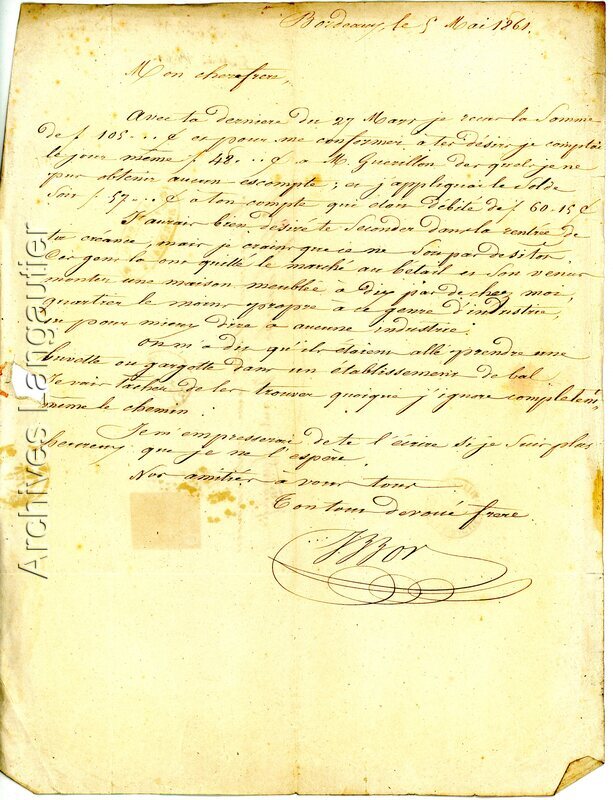 Bordeaux, le 5 Mai 1861.
Mon cher frere,
Avec ta derniere du 27 Mars je recus la Somme
de f 105 ... ¢ et pour me conformer a tes désirs je comptai
le jour même f 48 ... ¢ a M. Guerillon des quels je ne
pus obtenir aucun escompte; et j'appliquai le Solde
Soit f 57 ... ¢ a ton compte qui etait Débité de f 60-15 ¢
J'aurais bien désiré te Seconder dans la rentrée de
ta créance, mais je crains que ce ne Soit pas de sitot
Ces gens la ont quitté le marché au bétail et Son venus
monter une maison meublée a dix pas de chez moi,
quartier le moins propre à ce genre d'industrie,
ou pour mieux dire a aucune industrie.
On m'a dit qu'ils étaient allé prendre une
buvette ou gargotte dans un établissement de bal
Je vais tacher de les trouver quoique j'ignore complètem
même le chemin.
Je m'empresserai de te l'écrire si je Suis plus
heureux que je ne l'espère.
Nos amitiés à vous tous
Ton tout devoué frere
Archives Langautier